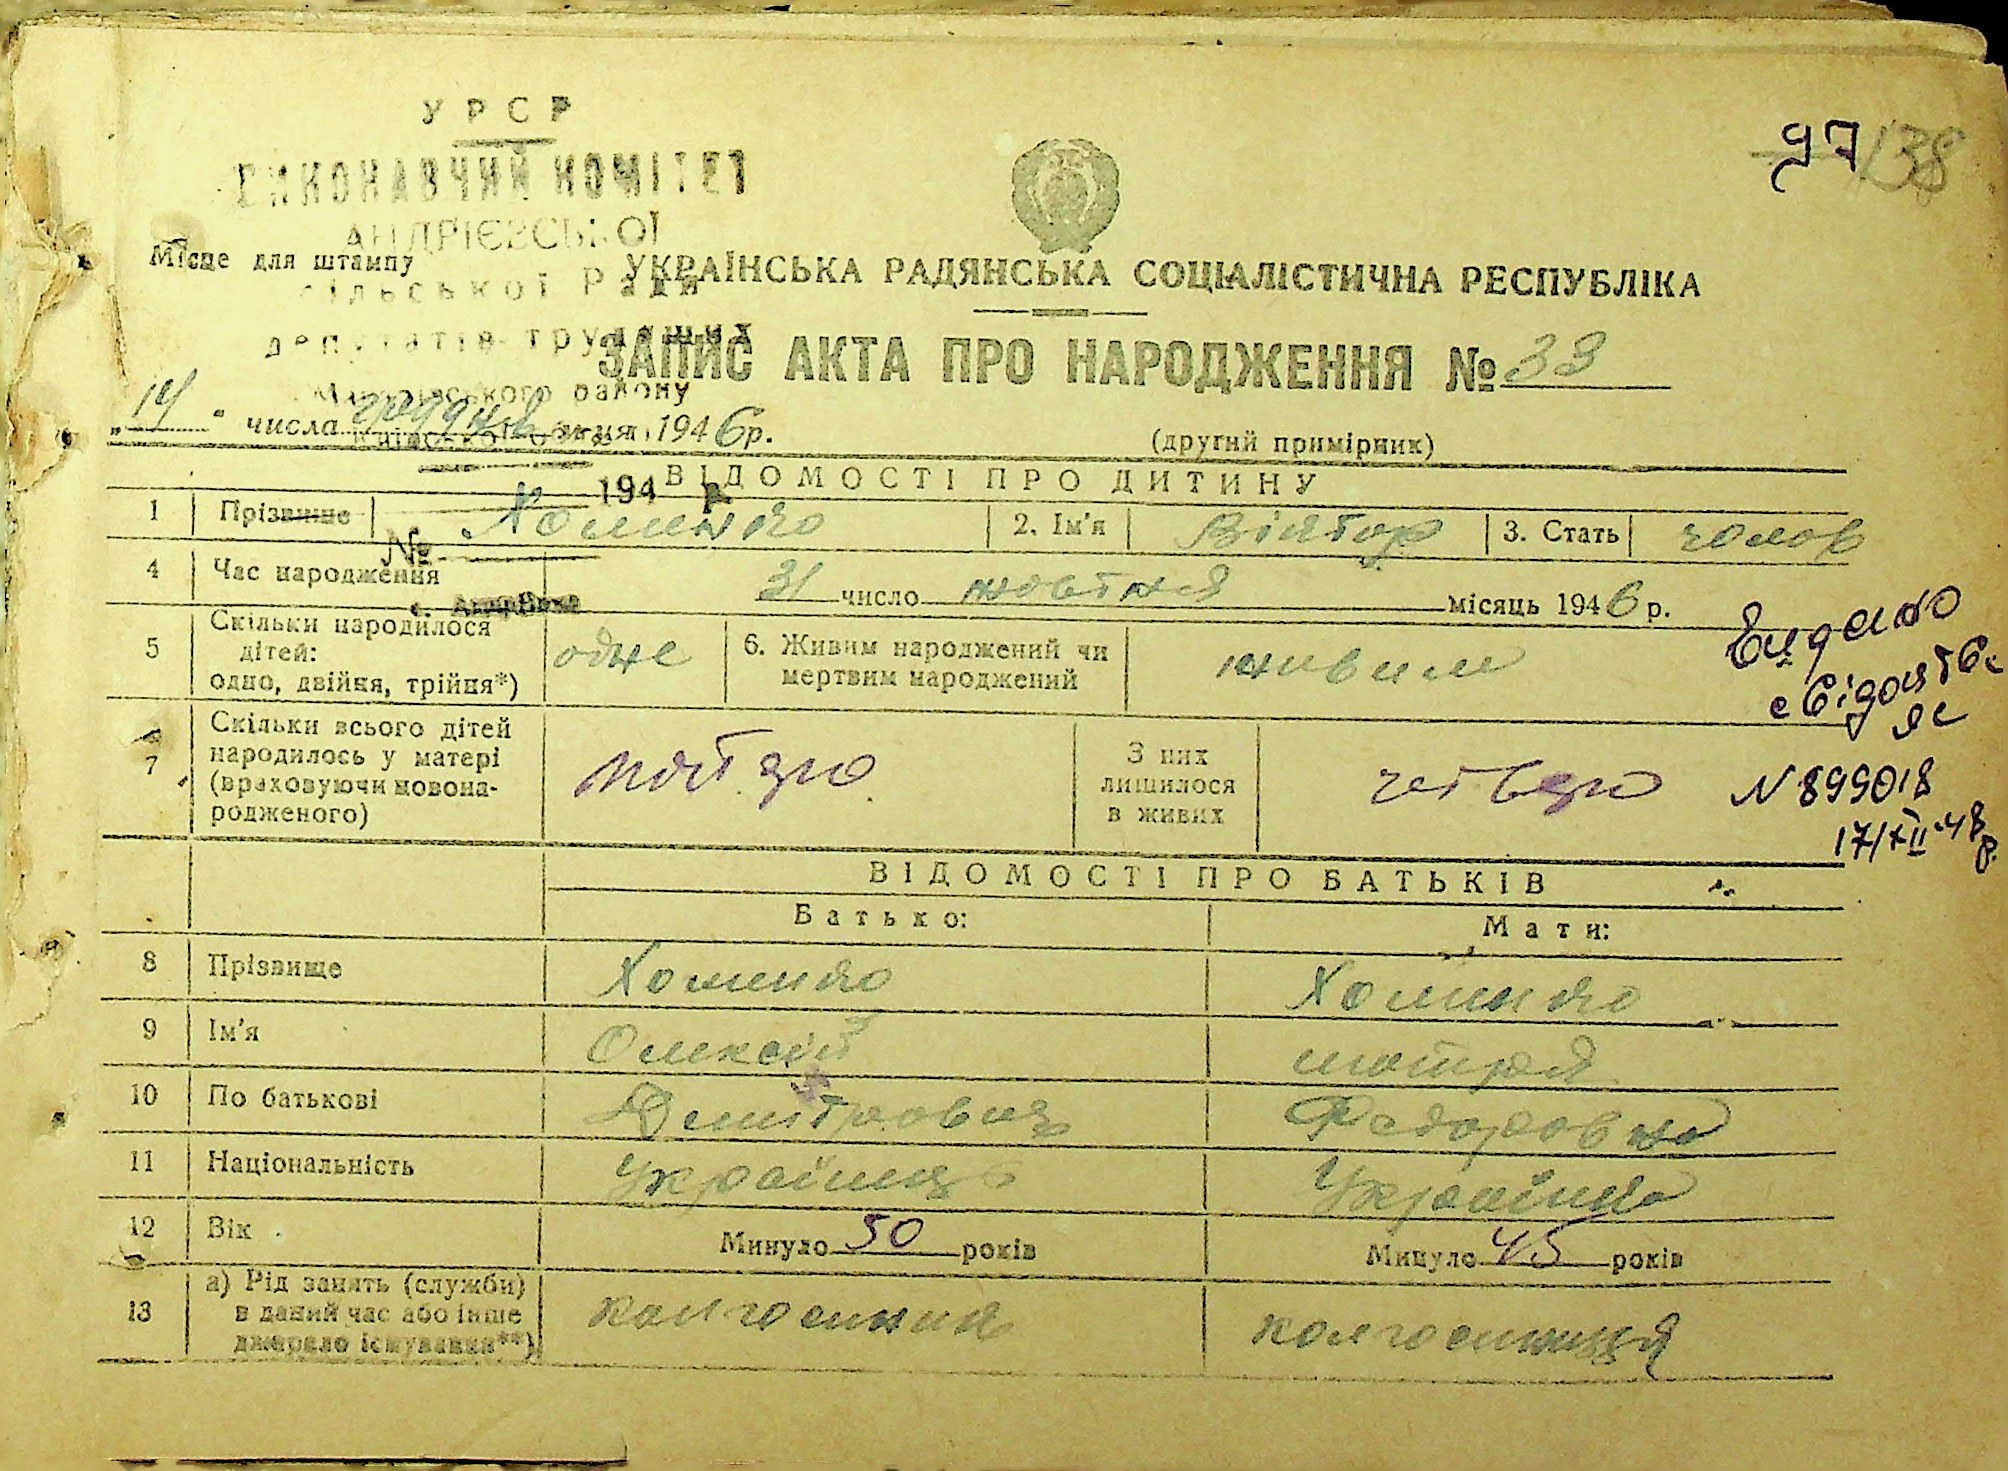 УРСР
ВИКОНАВЧИЙ КОМІТЕТ
АНДРІЄВСЬКОЇ
сільської Ради
депутатів трудящих
Макарівського району
Київської
194 р.
№
с. Андріївка
97 138
Місце для штампу
УКРАЇНСЬКА РАДЯНСЬКА СОЦІАЛІСТИЧНА РЕСПУБЛІКА
ЗАПИС АКТА ПРО НАРОДЖЕННЯ № 33
„14" числа грудня м-ця 1946 р.
(другий примірник)
ВІДОМОСТІ ПРО ДИТИНУ
1 Прізвище Хоменко 2. Ім'я Віктор 3. Стать чолов
4 Час народження 31 число жовтня місяць 1946 р.
5 Скільки народилося дітей: одно, двійня, трійня*) одне 6. Живим народжений чи мертвим народжений живим
7 Скільки всього дітей народилось у матері (враховуючи новонародженого) З них лишилося в живих четверо
Видано
свідоцтво
№ 899018
17/XII-48 р.
ВІДОМОСТІ ПРО БАТЬКІВ
Батько: Мати:
8 Прізвище Хоменко Хоменко
9 Ім'я Олексій мотря
10 По батькові Дмитрович Федоровна
11 Національність Українець Українка
12 Вік Минуло 50 років Минуло 45 років
13 а) Рід занять (служби) в даний час або інше джерело існування**) колгоспник колгоспниця